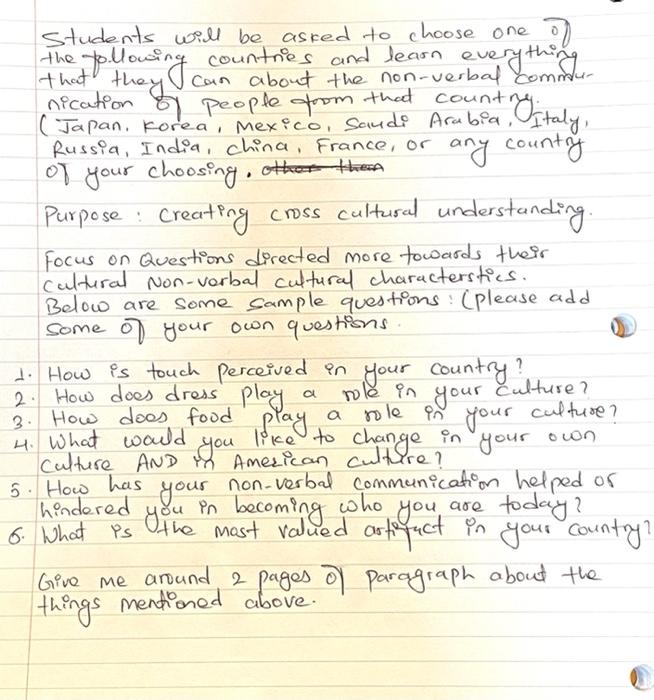 Students will be asked to choose one of
the following countries and learn everything
that they can about the non-verbal commu-
nication of people from that country.
(Japan, Korea, Mexico, Saudi Arabia, Italy,
Russia, India, China, France, or any country
of your choosing. other than
Purpose : Creating cross cultural understanding.
Focus on Questions directed more towards their
cultural Non-verbal cultural characterstics.
Below are some sample questions : (please add
some of your own questions.
1. How is touch perceived in your country?
2. How does dress play a role in your culture?
3. How does food play a role in your culture?
4. What would you like to change in your own
culture AND in American culture?
5. How has your non-verbal communication helped or
hindered you in becoming who you are today?
6. What is the most valued artifact in your country?
Give me around 2 pages of paragraph about the
things mentioned above.